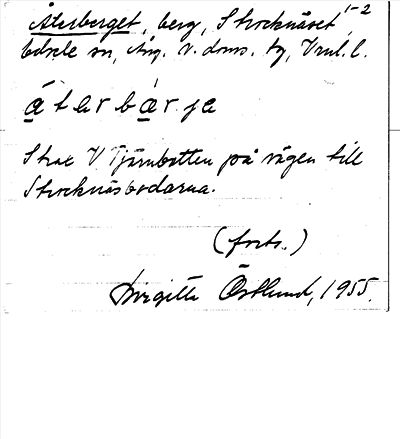 Återberget, berg, Strocknäset 1-2
Edsele sn, Ång. v. doms. tg, Vnl. l.
a t e r b a r j e
Strax V Tjärnbotten på vägen till
Strocknäsbodarna.
(forts.)
Birgitta Östlund, 1955.